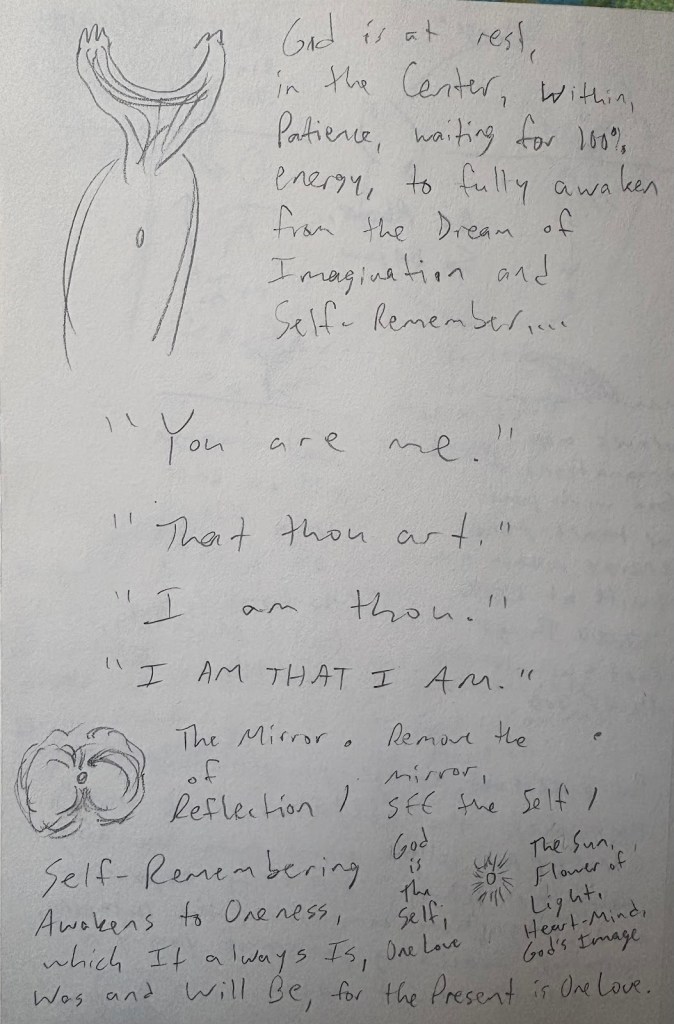 God is at rest,
in the Center, Within,
Patience, waiting for 100%
energy, to fully awaken
from the Dream of
Imagination and
Self-Remember....
"You are me."
"That thou art."
"I am thou."
"I AM THAT I AM."
The Mirror .
of
Reflection /
Remove the
mirror,
SEE the Self /
Self-Remembering
Awakens to Oneness,
which It always Is,
God
is
the
Self,
One Love
The Sun,
Flower of
Light,
Heart-Mind,
God's Image
Was and Will Be, for the Present is One Love.